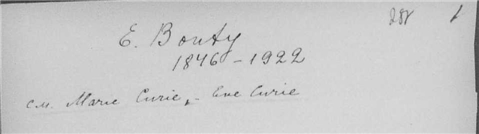 E. Bouty
1846 – 1922
см. Marie Curie, - Eve Curie